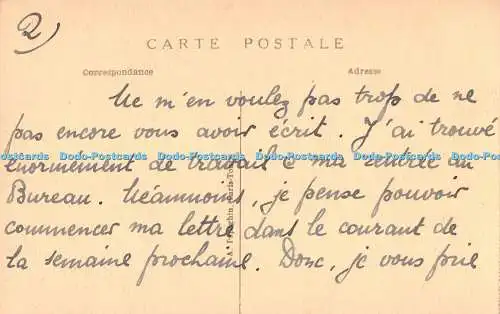 2)
CARTE POSTALE
Correspondance Adresse
Ne m'en voulez pas trop de ne
pas encore vous avoir écrit. J'ai trouvé
énormement de travail à ma rentrée au
Dodo-Postcards Dodo-Postcards Dodo-Postcards Dodo-Postcards Dodo-Postcards
Bureau. Néanmoins, je pense pouvoir
commencer ma lettre dans le courant de
la semaine prochaine. Donc, je vous prie